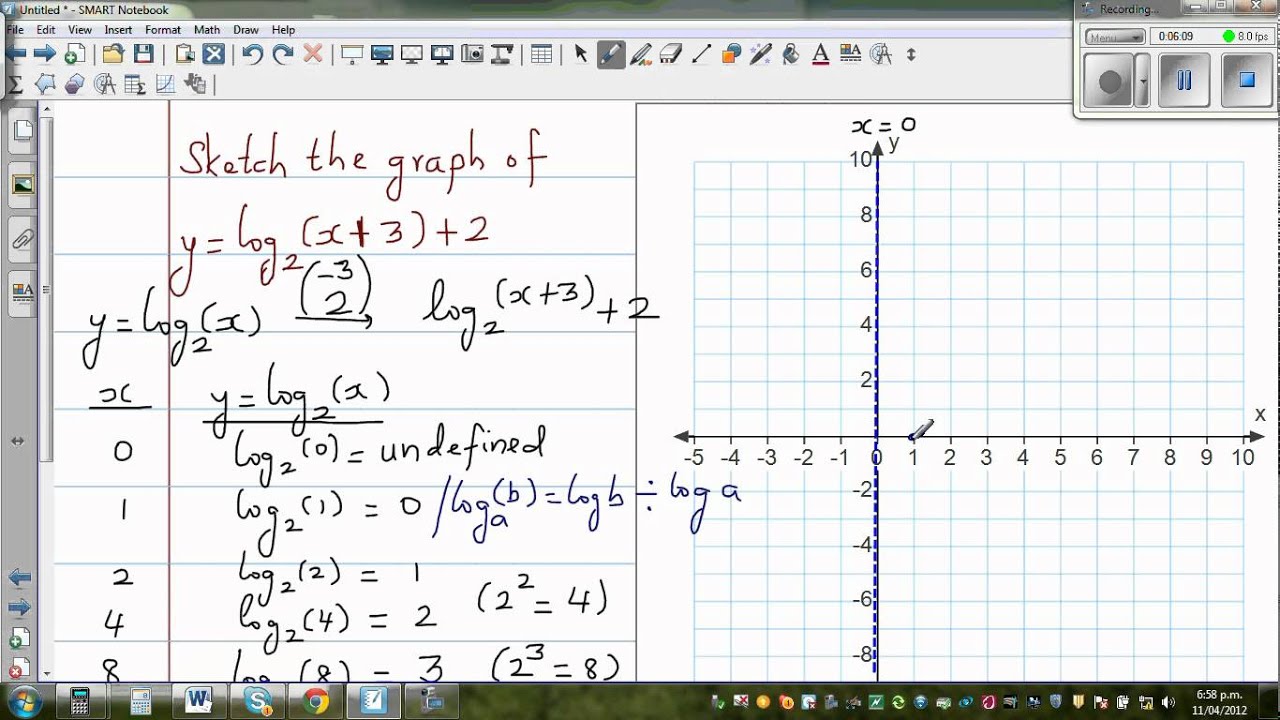 Untitled * - SMART Notebook
File Edit View Insert Format Math Draw Help
Recording...
Menu 0:06:09 8.0 fps
Sketch the graph of
y = log₂(x+3)+2
y = log₂(x) (-3 2) → log₂(x+3)+2
x y = log₂(x)
0 log₂(0) = undefined
1 log₂(1) = 0 / logₐ(b) = log b ÷ log a
2 log₂(2) = 1
4 log₂(4) = 2 (2² = 4)
8 log₂(8) = 3 (2³ = 8)
x = 0
y
10
8
6
4
2
x
-5 -4 -3 -2 -1 0 1 2 3 4 5 6 7 8 9 10
-2
-4
-6
-8
6:58 p.m.
11/04/2012